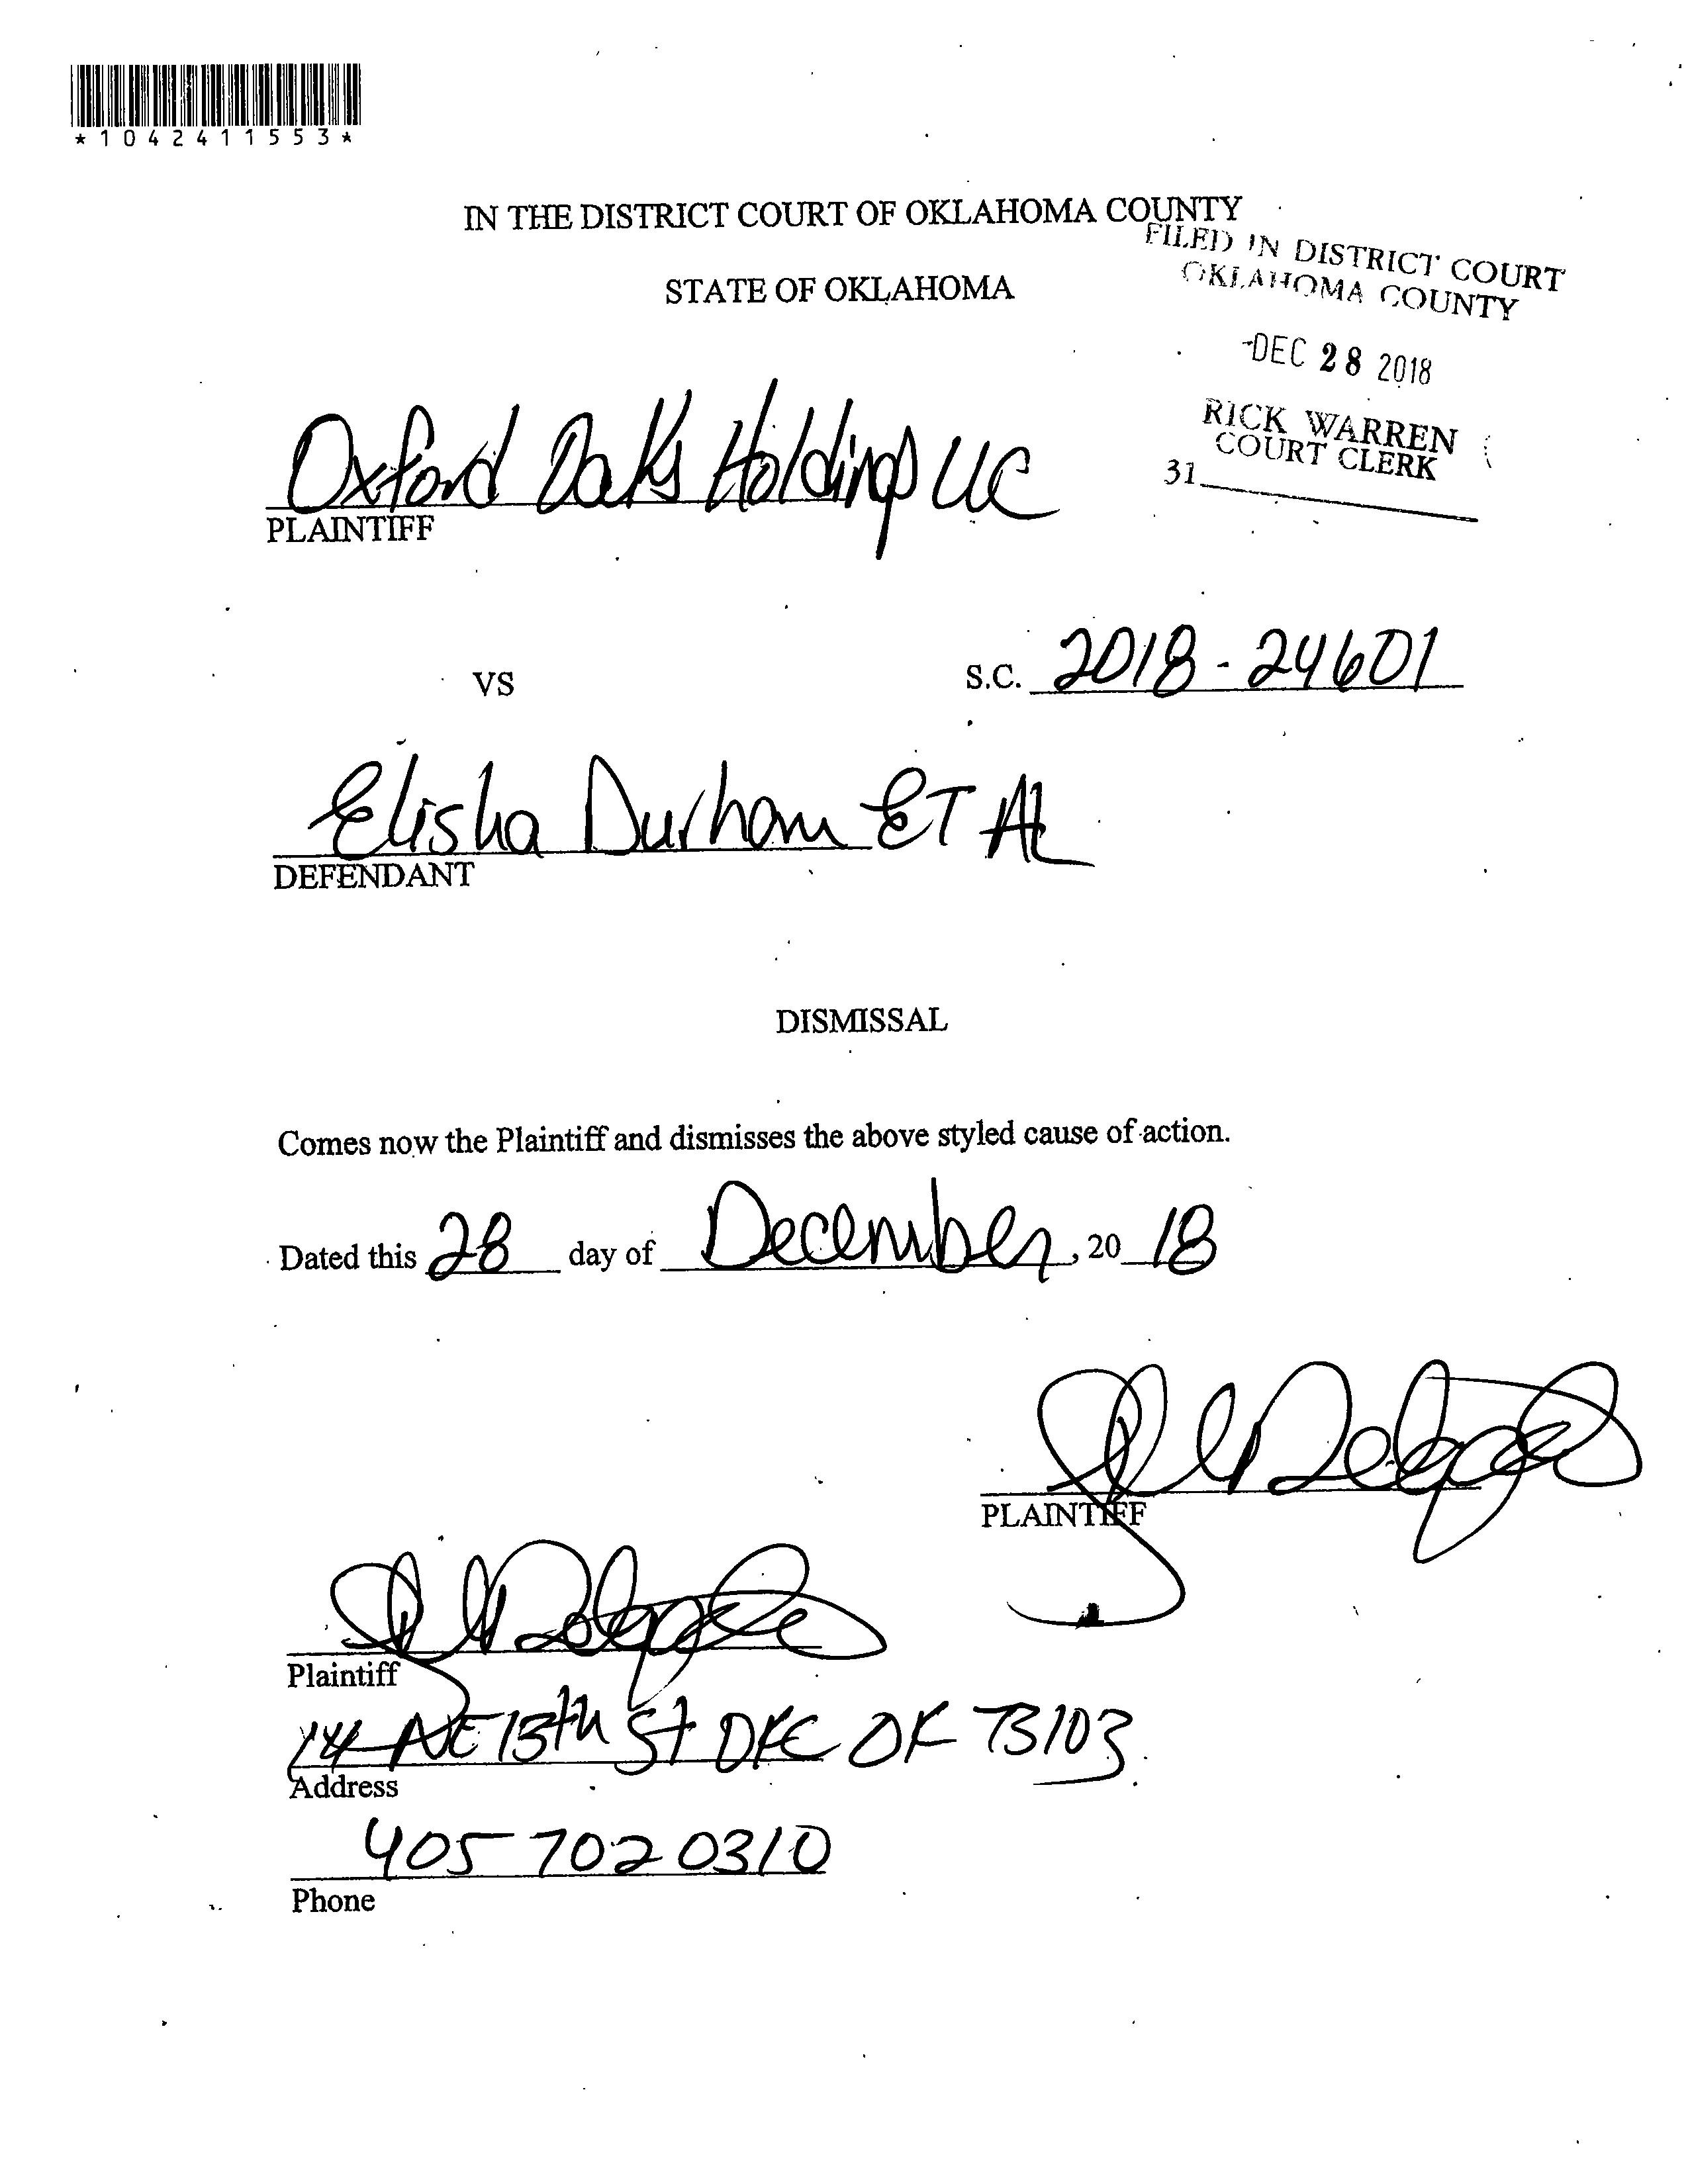 *1042411553*
IN THE DISTRICT COURT OF OKLAHOMA COUNTY
STATE OF OKLAHOMA
FILED IN DISTRICT COURT
OKLAHOMA COUNTY
DEC 28 2018
RICK WARREN
COURT CLERK
31
Oxford Oaks Holdings LLC
PLAINTIFF
VS
S.C. 2018-24601
Elisha Durham ET AL
DEFENDANT
DISMISSAL
Comes now the Plaintiff and dismisses the above styled cause of action.
Dated this 28 day of December, 20 18
PLAINTIFF
Plaintiff
14 NE 13th St OKC OK 73103
Address
405 702 0310
Phone